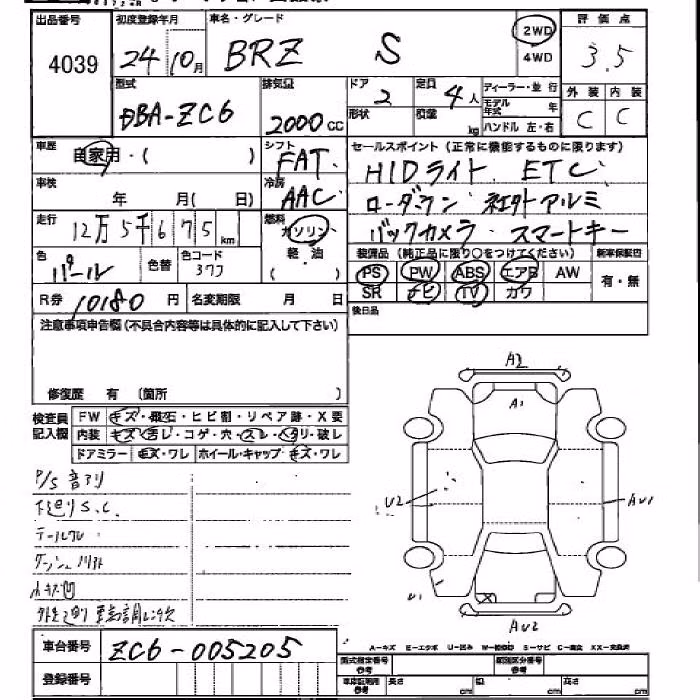 出品番号 初度登録年月 車名・グレード 2WD 評価点
4039 24年10月 BRZ S 4WD 3.5
型式 排気量 ドア 定員 ディーラー・並行 外装 内装
DBA-ZC6 2000cc 2 4人 モデル年式 年 C C
形状 積載 kg ハンドル 左・右
車歴 自家用・( ) シフト FAT セールスポイント(正常に機能するものに限ります)
HIDライト ETC
車検 年 月( 日) 冷房 AAC ローダウン 社外アルミ
走行 12万5千675km 燃料 ガソリン 軽・油 バックカメラ・スマートキー
色 パール 色替 色コード 37J 装備品(純正品に限り○をつけてください) 新車保証書
PS PW ABS エアB AW 有・無
R券 10180円 名変期限 月 日 SR ナビ TV カワ
注意事項申告欄(不具合内容等は具体的に記入して下さい) 後日品
修復歴 有 (箇所 )
検査員記入欄 FW キズ・飛石・ヒビ割・リペア跡・X要
内装 キズ・汚レ・コゲ・穴・スレ・ヘタリ・破レ
ドアミラー キズ・ワレ ホイール・キャップ キズ・ワレ
A2
A1
P/S音アリ
下廻りS.C.
U2
AU1
テールワレ
小キズ凹
U1
AU2
車台番号 ZC6-005205
A-キズ E-エクボ U-凹み W-補修跡 S-サビ C-腐食 XX-交換済
登録番号 型式指定番号参考 類別区分番号
車庫証明用参考 長さ cm 幅 cm 高さ cm